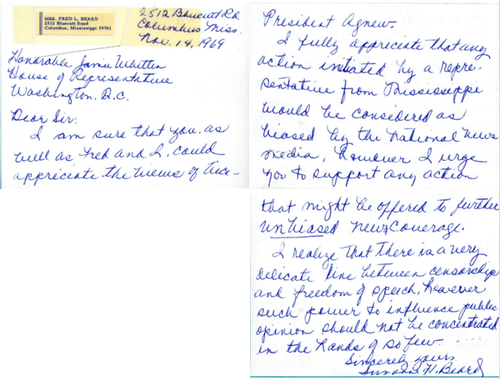 MRS. FRED L. BEARD
2512 Bluecutt Road
Columbus, Mississippi 39701
2512 Bluecutt Rd
Columbus Miss.
Nov. 14, 1969
Honorable Jamie Whitten
House of Representative
Washington, D.C.
Dear Sir:
I am sure that you, as
well as Fred and I, could
appreciate the views of Vice-
President Agnew.
I fully appreciate that any
action initiated by a repre-
sentative from Mississippi
would be considered as
biased by the National news
media, however I urge
you to support any action
that might be offered to further
unbiased news coverage.
I realize that there is a very
delicate line between censorship
and freedom of speech, however
such power to influence public
opinion should not be concentrated
in the hands of so few.
Sincerely yours,
H. Beard